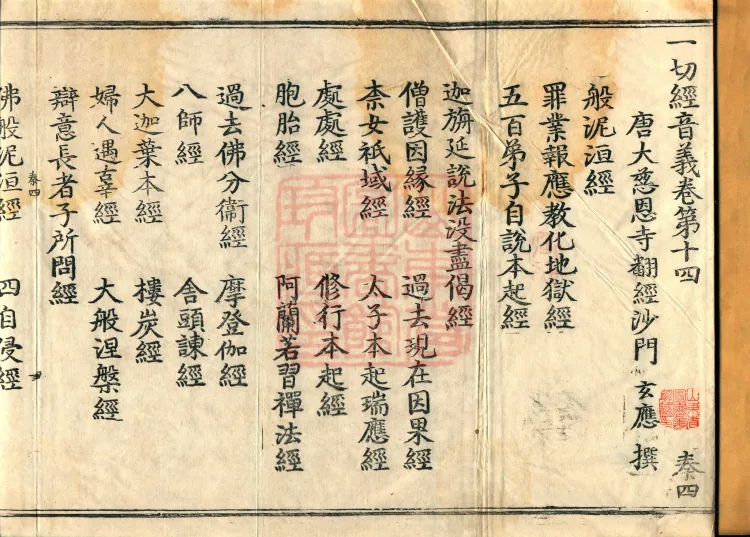 一切經音義卷第十四 秦四
唐大慈恩寺翻經沙門 玄應 撰
般泥洹經
罪業報應教化地獄經
五百弟子自說本起經
迦旃延說法沒盡偈經
僧護因緣經 過去現在因果經
柰女祇域經 太子本起瑞應經
處處經 修行本起經
胞胎經 阿蘭若習禪法經
過去佛分衞經 摩登伽經
八師經 舍頭諫經
大迦葉本經 樓炭經
婦人遇辜經 大般涅槃經
辯意長者子所問經
秦四
佛般泥洹經 四自侵經